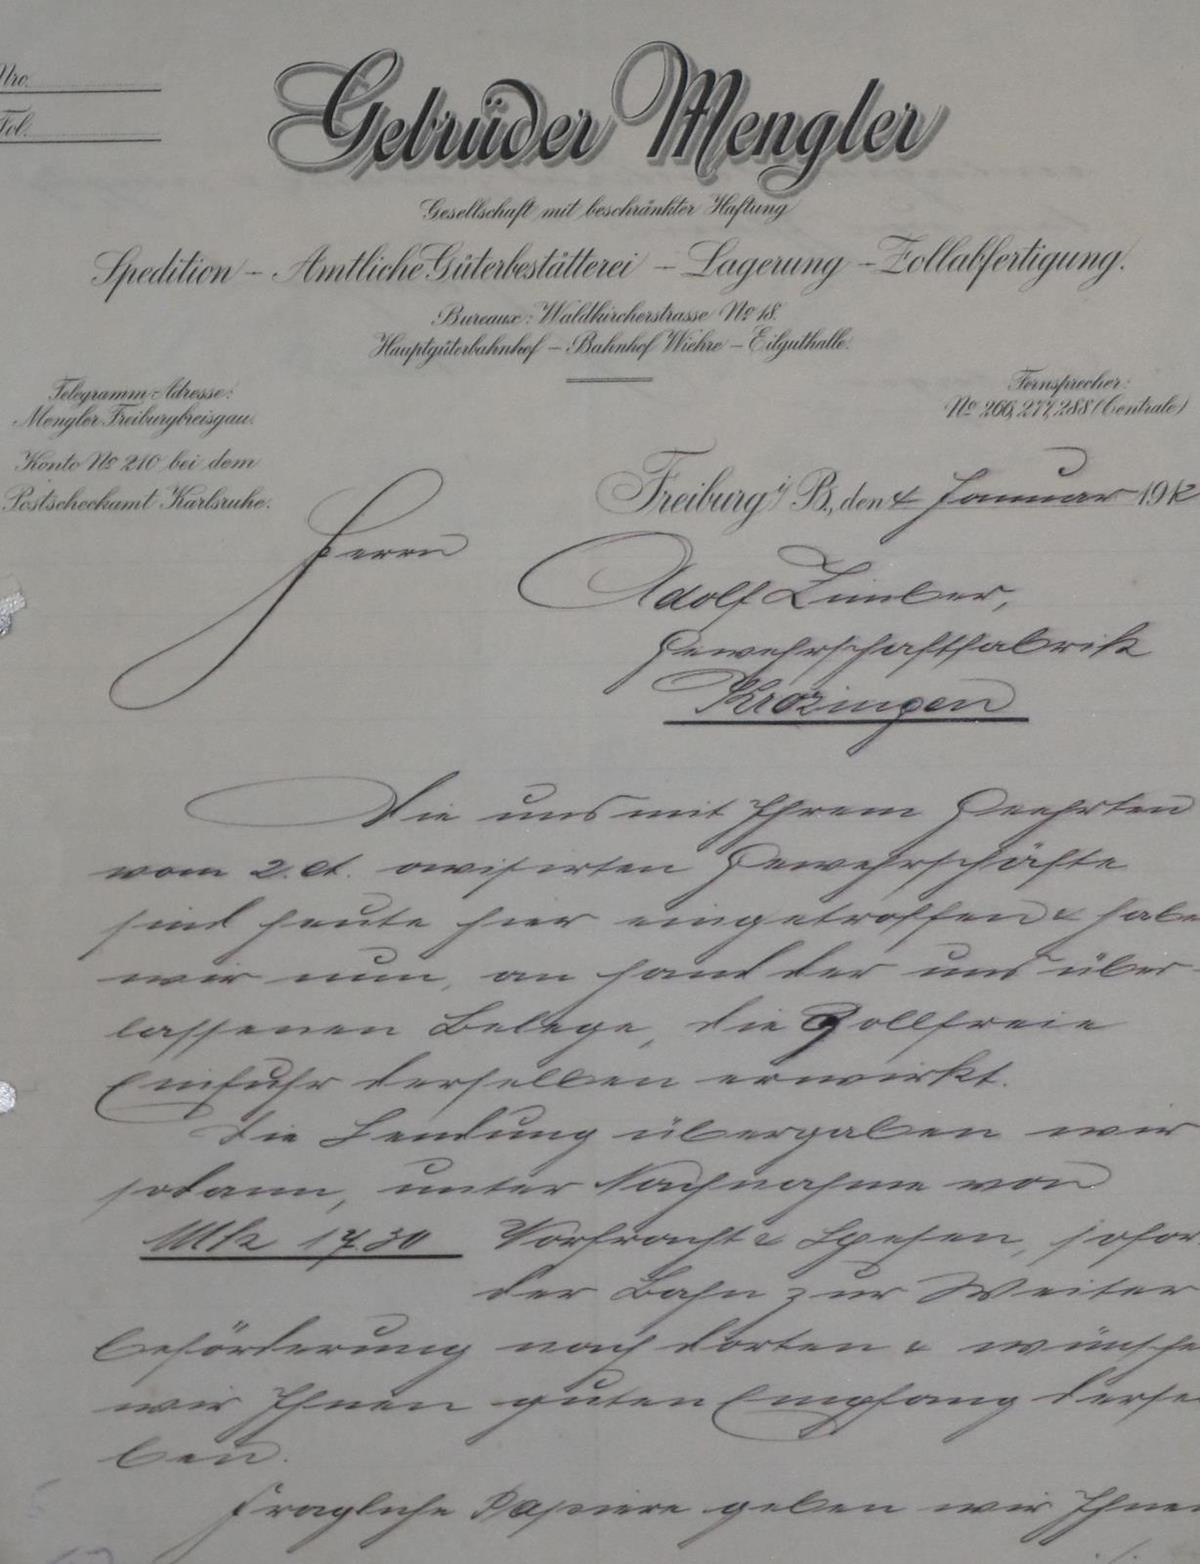 Nro.
Fol.
Gebrüder Mengler
Gesellschaft mit beschränkter Haftung
Spedition – Amtliche Güterbestätterei – Lagerung – Zollabfertigung.
Bureaux: Waldkircherstrasse No 18.
Hauptgüterbahnhof – Bahnhof Wiehre – Eilguthalle.
Telegramm-Adresse:
Mengler Freiburgbreisgau.
Konto No 210 bei dem
Postscheckamt Karlsruhe.
Fernsprecher:
No 266, 277, 288 (Centrale)
Freiburg i/B., den 4 Januar 1912
Herrn
Adolf Zimber,
Gewehrschaftfabrik
Krozingen
Die uns mit Ihrem Geehrten
vom 2. ct. avisirten Gewehrschäfte
sind heute hier eingetroffen & habe
wir nun, an Hand der uns über-
lassenen Belege, die Zollfreie
Einfuhr derselben erwirkt.
Die Sendung übergaben wir
sodann, unter Nachnahme von
Mk 17.30 Vorfracht & Spesen, sofor
der Bahn zur Weiter
beförderung nach dorten & wünsche
wir Ihnen guten Empfang derse
ben.
Fragliche Papiere geben wir Ihne